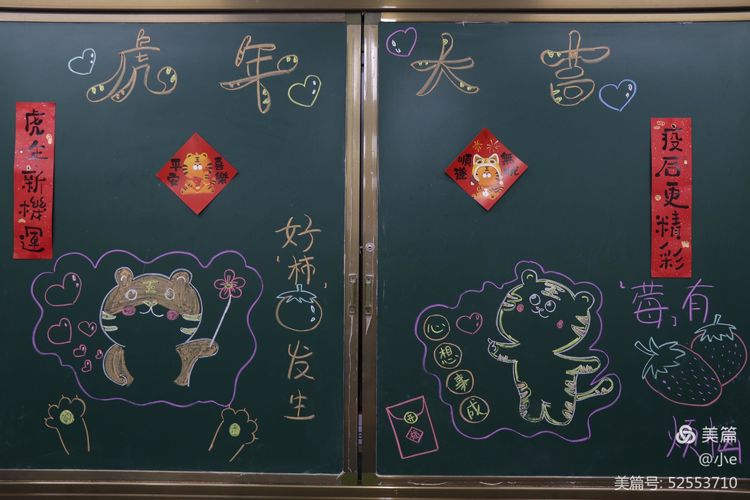 虎年大吉
虎年新機運
平安
喜樂
順遂
疫后更精彩
好'柿'发生
心想事成
'莓'有烦恼
美篇
@小e
美篇号: 52553710